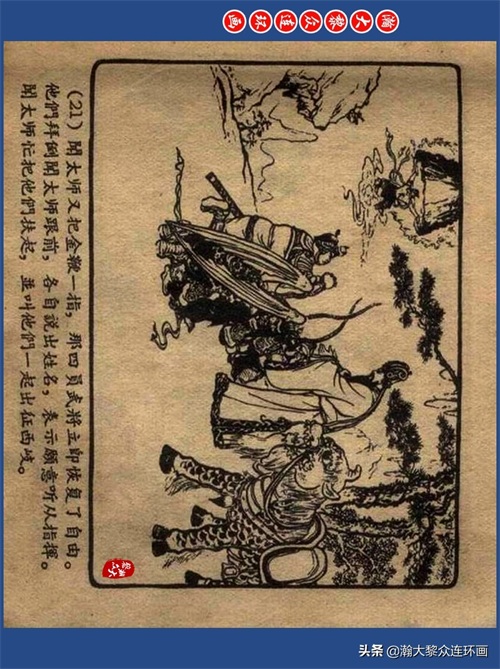 瀚大黎众连环画
(21) 聞太师又把金鞭一指，那四員武將立即恢复了自由。
他們拜倒聞太师跟前，各自說出姓名，表示願意听从指揮。
聞太师忙把他們扶起，並叫他們一起出征西岐。
头条 @瀚大黎众连环画